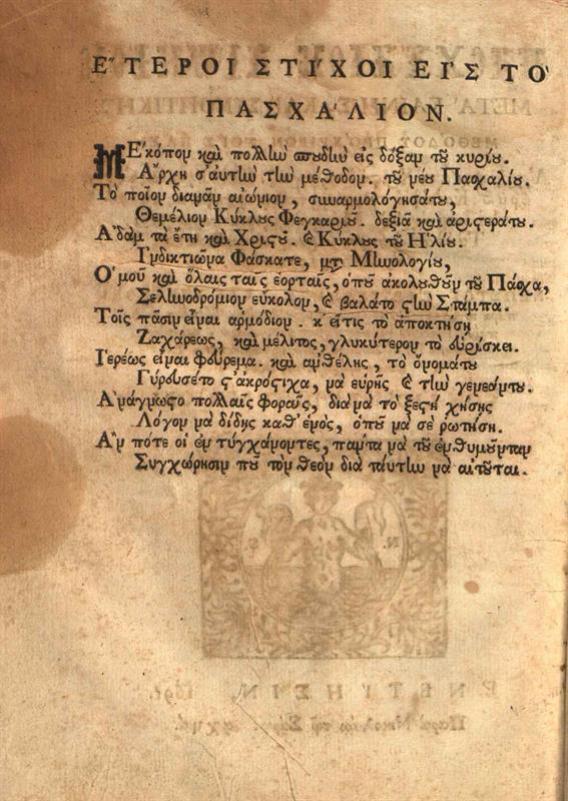 ΕʹΤΕΡΟΙ ΣΤΙʹΧΟΙ ΕΙʹΣ ΤΟʹ
ΠΑΣΧΑʹΛΙΟΝ.
ΜΕʹ κόπον καὶ πολλὴν σπουδὴν εἰς δόξαν τοῦ κυρίου.
Αʹρχὴ σ' αὐτὴν τὴν μέθοδον. τοῦ νέου Πασχαλίου.
Τὸ ποῖον διαμὰν αἰώνιον, συναρμολόγησάτου,
Θεμέλιον Κύκλους Φεγκαριοῦ. δεξιὰ καὶ ἀριστεράτου.
Αʹδὰμ τὰ ἔτη καὶ Χριστοῦ. καὶ Κύκλους τοῦ Ηʹλίου.
Γʹνδικτιῶνα Φάσκατε, μὲ Μηνολογίου,
Οʹμοῦ καὶ ὅλαις ταῖς ἑορταῖς, ὁποῦ ἀκολυθοῦν τοῦ Πάσχα,
Σεληνοδρόμιον εὔκολον, καὶ βαλάτο στὴν Στάμπα.
Τοῖς πᾶσιν εἶναι ἁρμόδιον. κ' εἴτις τὸ ἀποκτήσῃ
Ζαχάρεως, καὶ μέλιτος, γλυκύτερον τὸ εὑρίσκει.
Γʹερέως εἶναι φθούρεμα. καὶ ἀμπέλης, τὸ ὄνομάτου
Γύρευσέτο στ' ἀκρόστιχα, νὰ εὑρῇς καὶ τὴν γενεάντου.
Αʹνάγνωστο πολλαῖς φοραῖς, διανὰ τὸ ξεστὴ χήσῃς
Λόγον νὰ δίδῃς καθ' ἑνὸς, ὁποῦ νὰ σὲ ρωτήσῃ.
Αʹν πότε οἱ ἐντυγχάνοντες, πάντα νὰ τοῦ ἐνθυμοῦνται
Συγχώρησιν ποῦ τὸν θεὸν διὰ ταύτην νὰ αἰτοῦται.